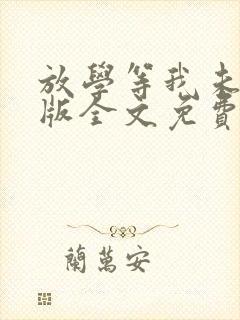 放學等我未
版全文免費
蘭萬安